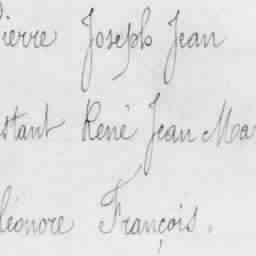 ierre Joseph Jean
stant René Jean Ma
léonore François.